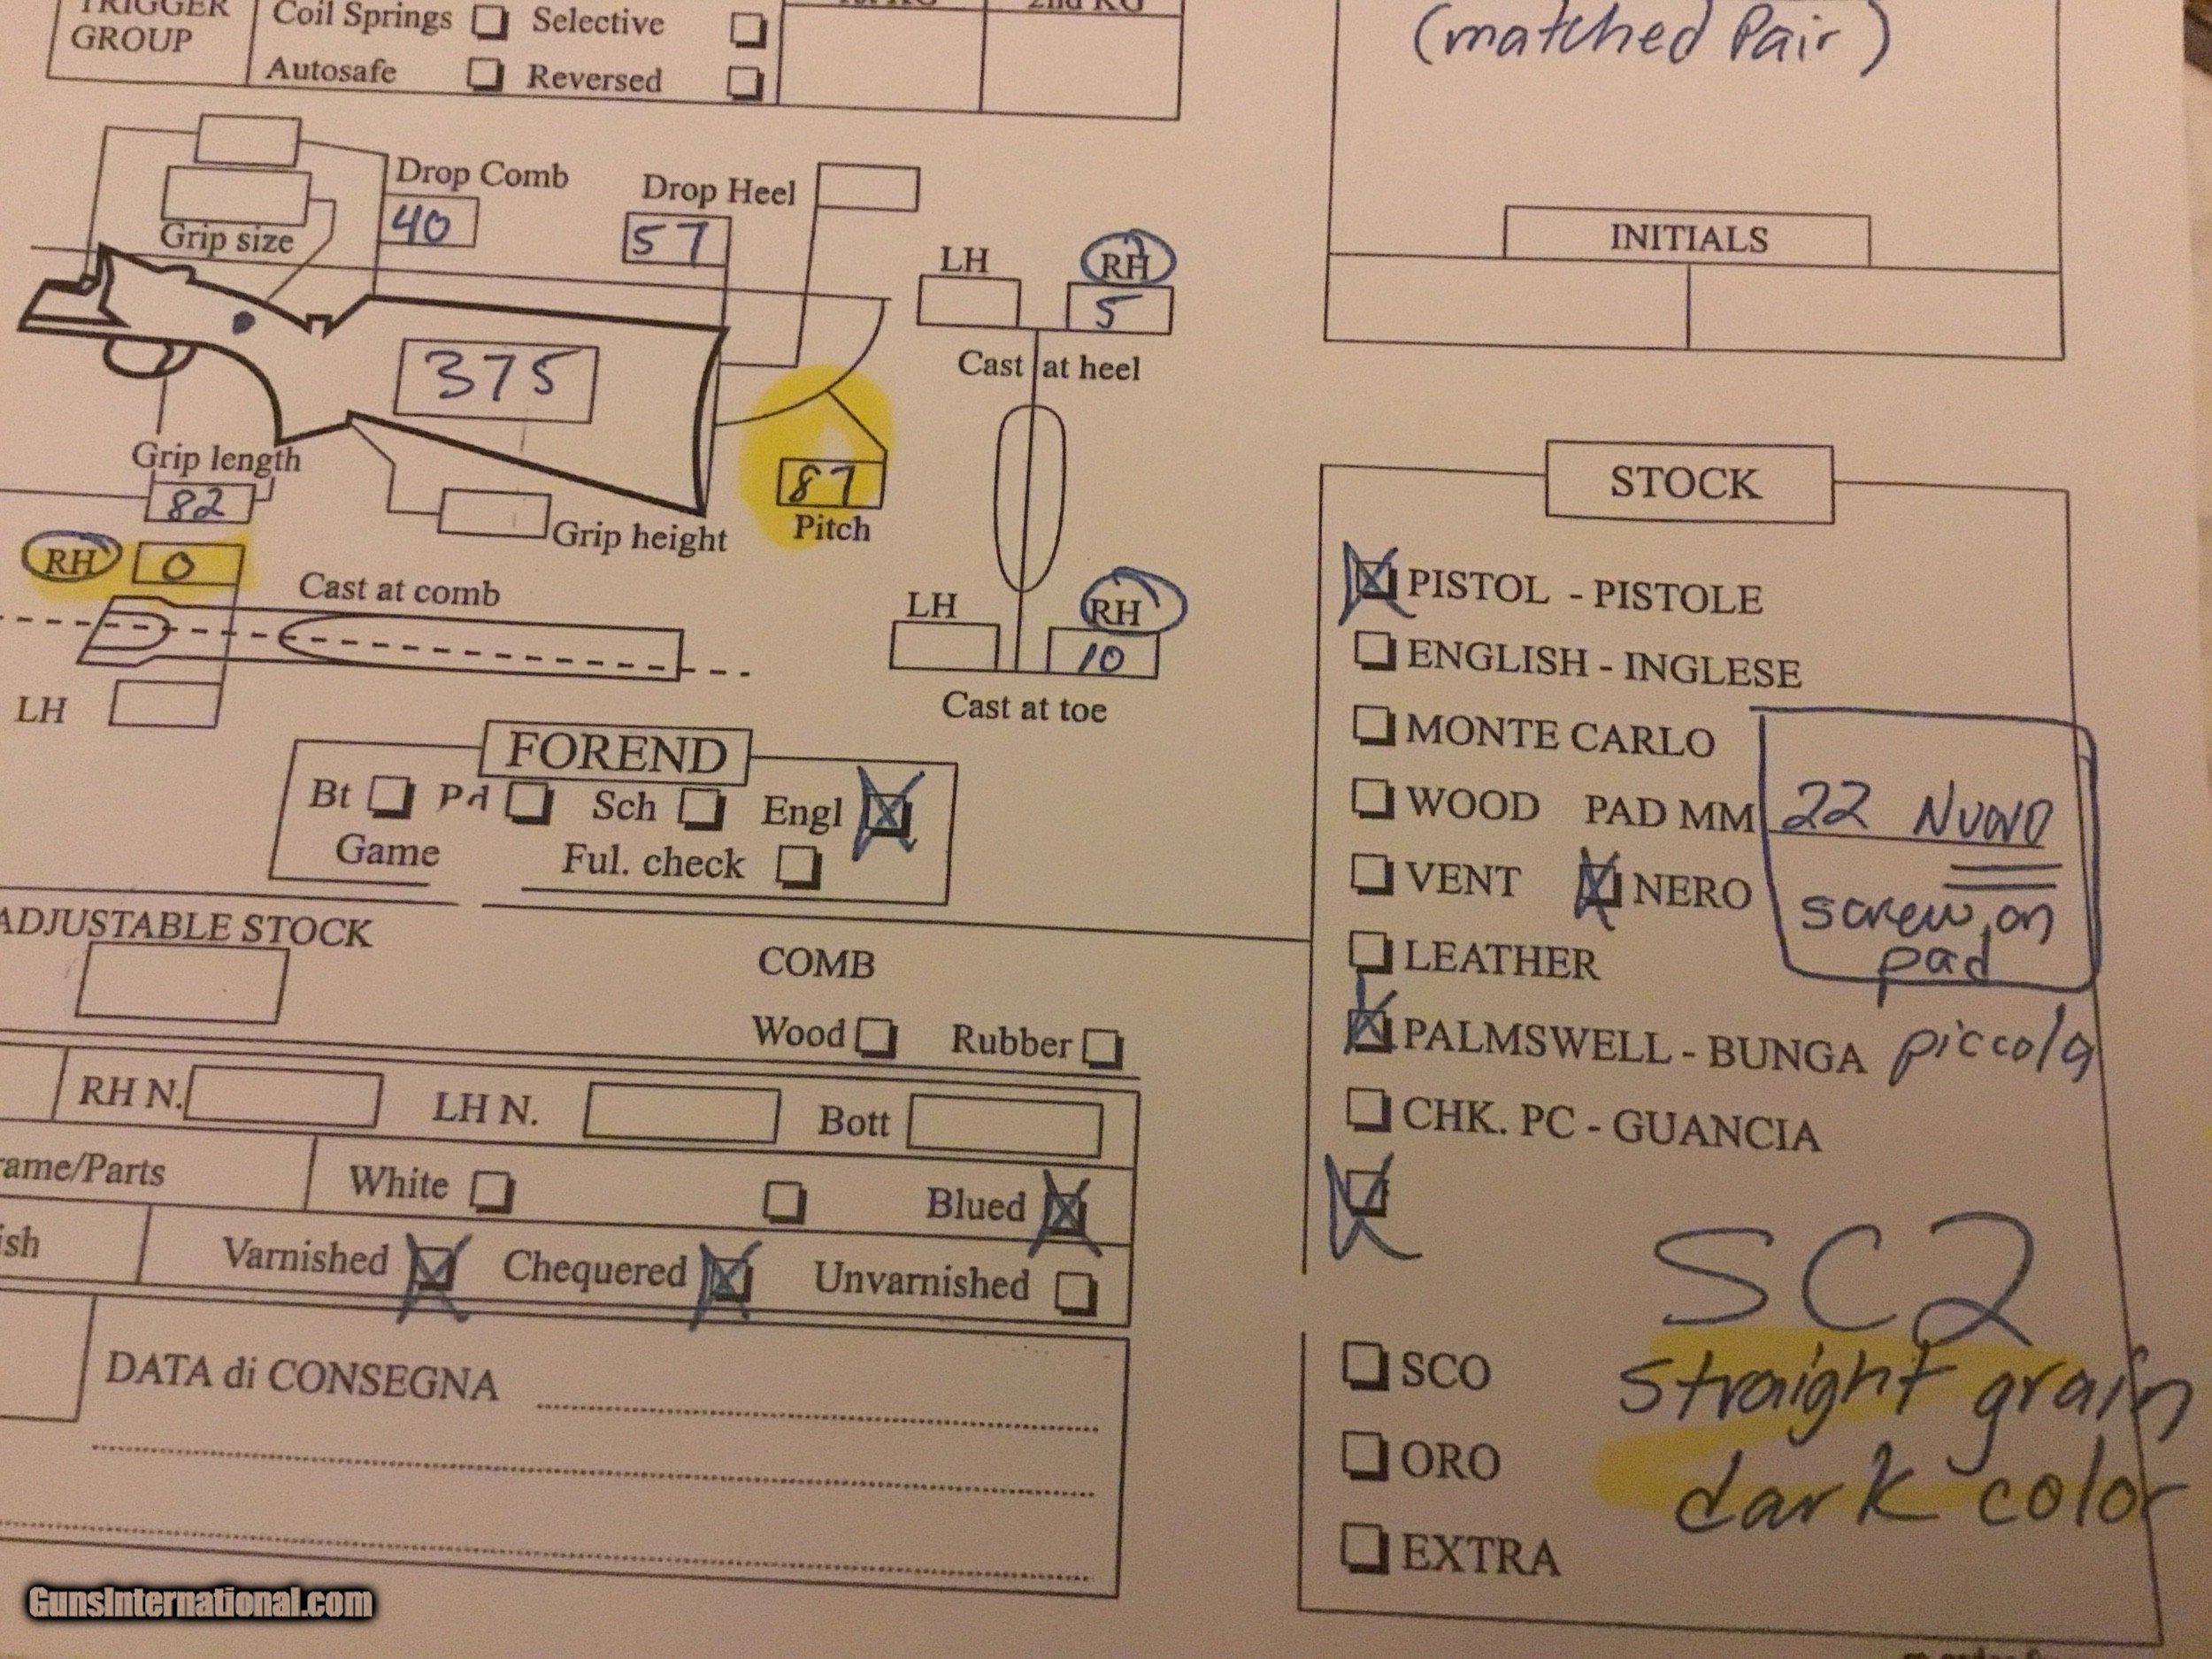 TRIGGER
GROUP
Coil Springs Selective
Autosafe Reversed
2nd KG
(matched Pair)
Drop Comb
40
Drop Heel
57
Grip size
375
Grip length
82
Grip height
87
Pitch
LH RH
5
Cast at heel
LH RH
10
Cast at toe
RH 0
Cast at comb
LH
INITIALS
FOREND
Bt Pd Sch Engl
Game Ful. check
ADJUSTABLE STOCK
COMB
Wood Rubber
RH N. LH N. Bott
rame/Parts White Blued
ish Varnished Chequered Unvarnished
DATA di CONSEGNA
STOCK
PISTOL - PISTOLE
ENGLISH - INGLESE
MONTE CARLO
WOOD PAD MM 22 NUOVO
VENT NERO screw on
pad
LEATHER
PALMSWELL - BUNGA piccola
CHK. PC - GUANCIA
SC2
SCO straight grain
ORO dark color
EXTRA
GunsInternational.com